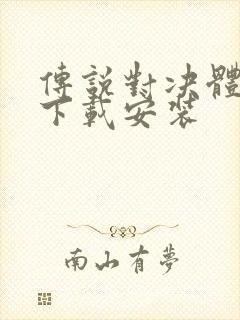 傳說對决體
下載安装
南山有夢